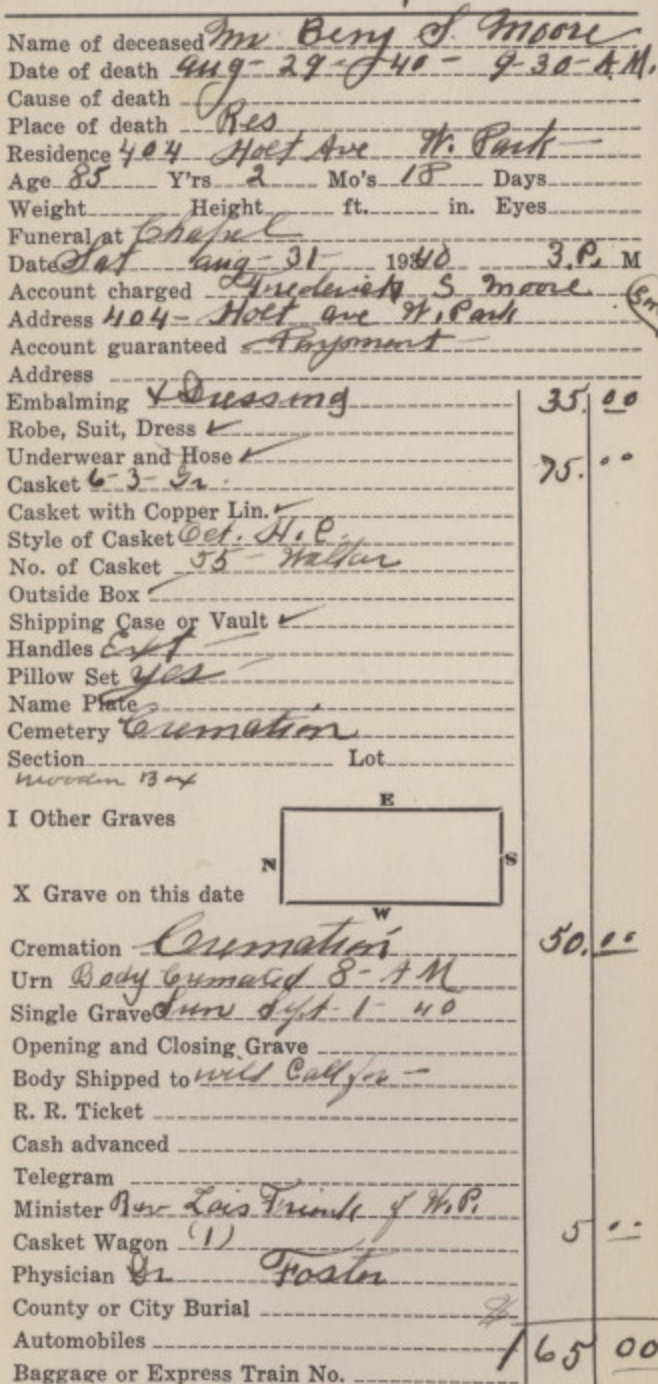 Name of deceased Mr Benj S. Moore
Date of death Aug - 29 - 40 - 9-30-A.M.
Cause of death
Place of death Res
Residence 404 Holt Ave W. Park
Age 85 Y'rs 2 Mo's 18 Days
Weight Height ft. in. Eyes
Funeral at Chapel
Date Sat Aug - 31 - 1940 3.P. M
Account charged Frederick S Moore
Address 404 - Holt Ave W. Park
Account guaranteed Payment
Address
Embalming & Dressing 35.00
Robe, Suit, Dress ✓
Underwear and Hose ✓
Casket 6-3- Gr. 75.00
Casket with Copper Lin. ✓
Style of Casket Oct. H.C.
No. of Casket 55 - Walker
Outside Box
Shipping Case or Vault ✓
Handles Ext
Pillow Set Yes
Name Plate
Cemetery Cremation
Section Lot
Wooden Box
E
I Other Graves
N S
X Grave on this date
W
Cremation Cremation 50.00
Urn Body Cremated 8 - A M
Single Grave Sun Sept - 1 - 40
Opening and Closing Grave
Body Shipped to will Call for -
R. R. Ticket
Cash advanced
Telegram
Minister Rev of W.P.
Casket Wagon (1) 5 00
Physician Dr Foster
County or City Burial
Automobiles 165 00
Baggage or Express Train No.